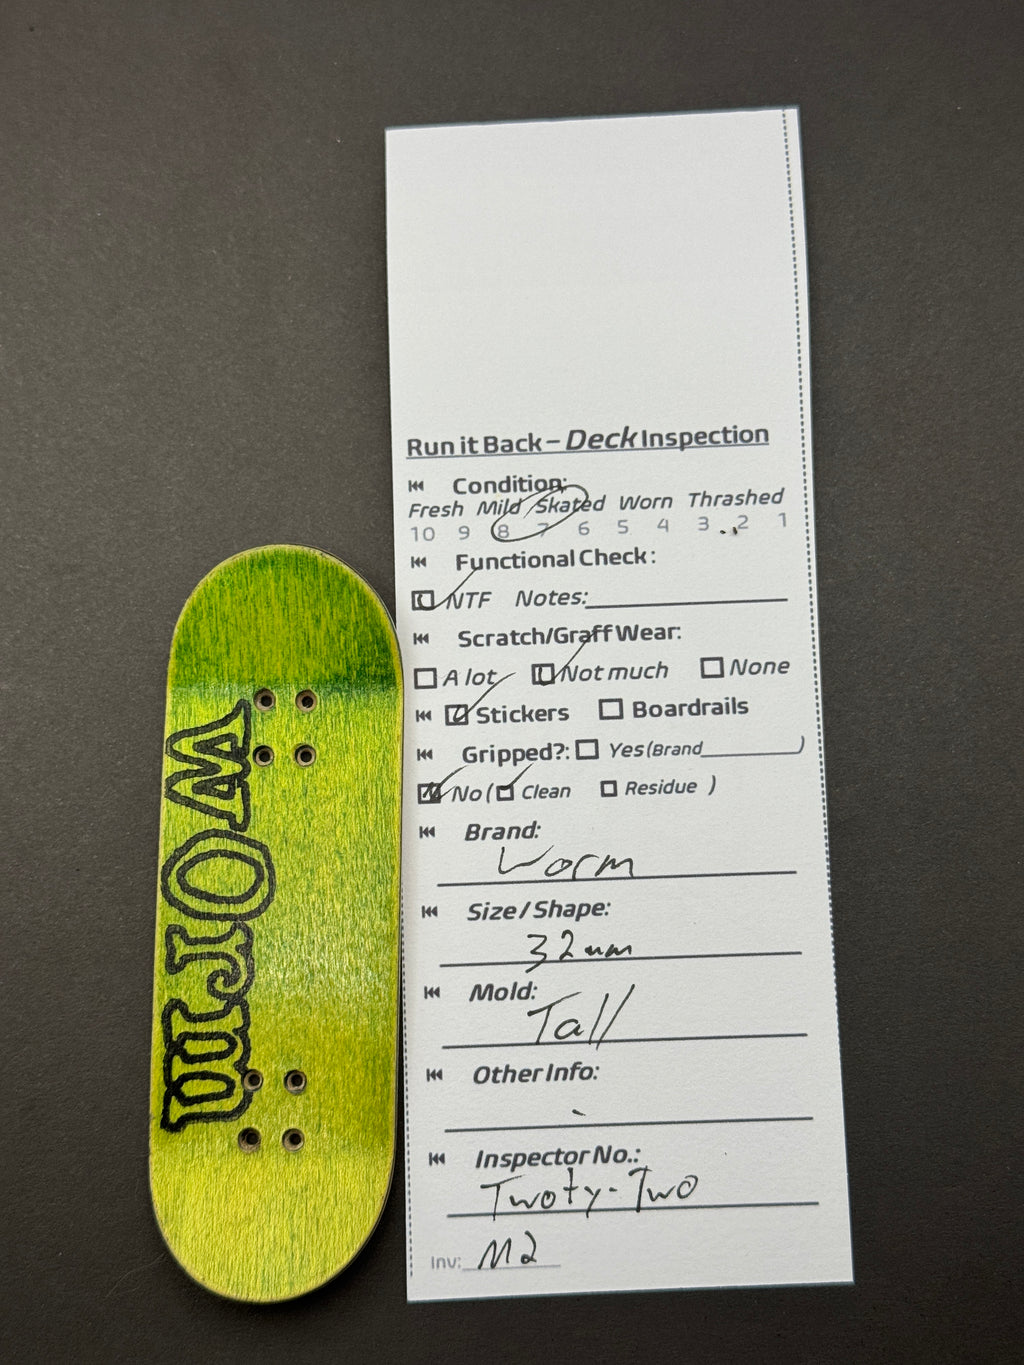 WORM
Run it Back – Deck Inspection
Condition:
Fresh Mild Skated Worn Thrashed
10 9 8 7 6 5 4 3 2 1
Functional Check:
NTF Notes:
Scratch/Graff Wear:
A lot Not much None
Stickers Boardrails
Gripped?: Yes (Brand )
No ( Clean Residue )
Brand:
Worm
Size / Shape:
32mm
Mold:
Tall
Other Info:
Inspector No.:
Twoty-Two
Inv: M2